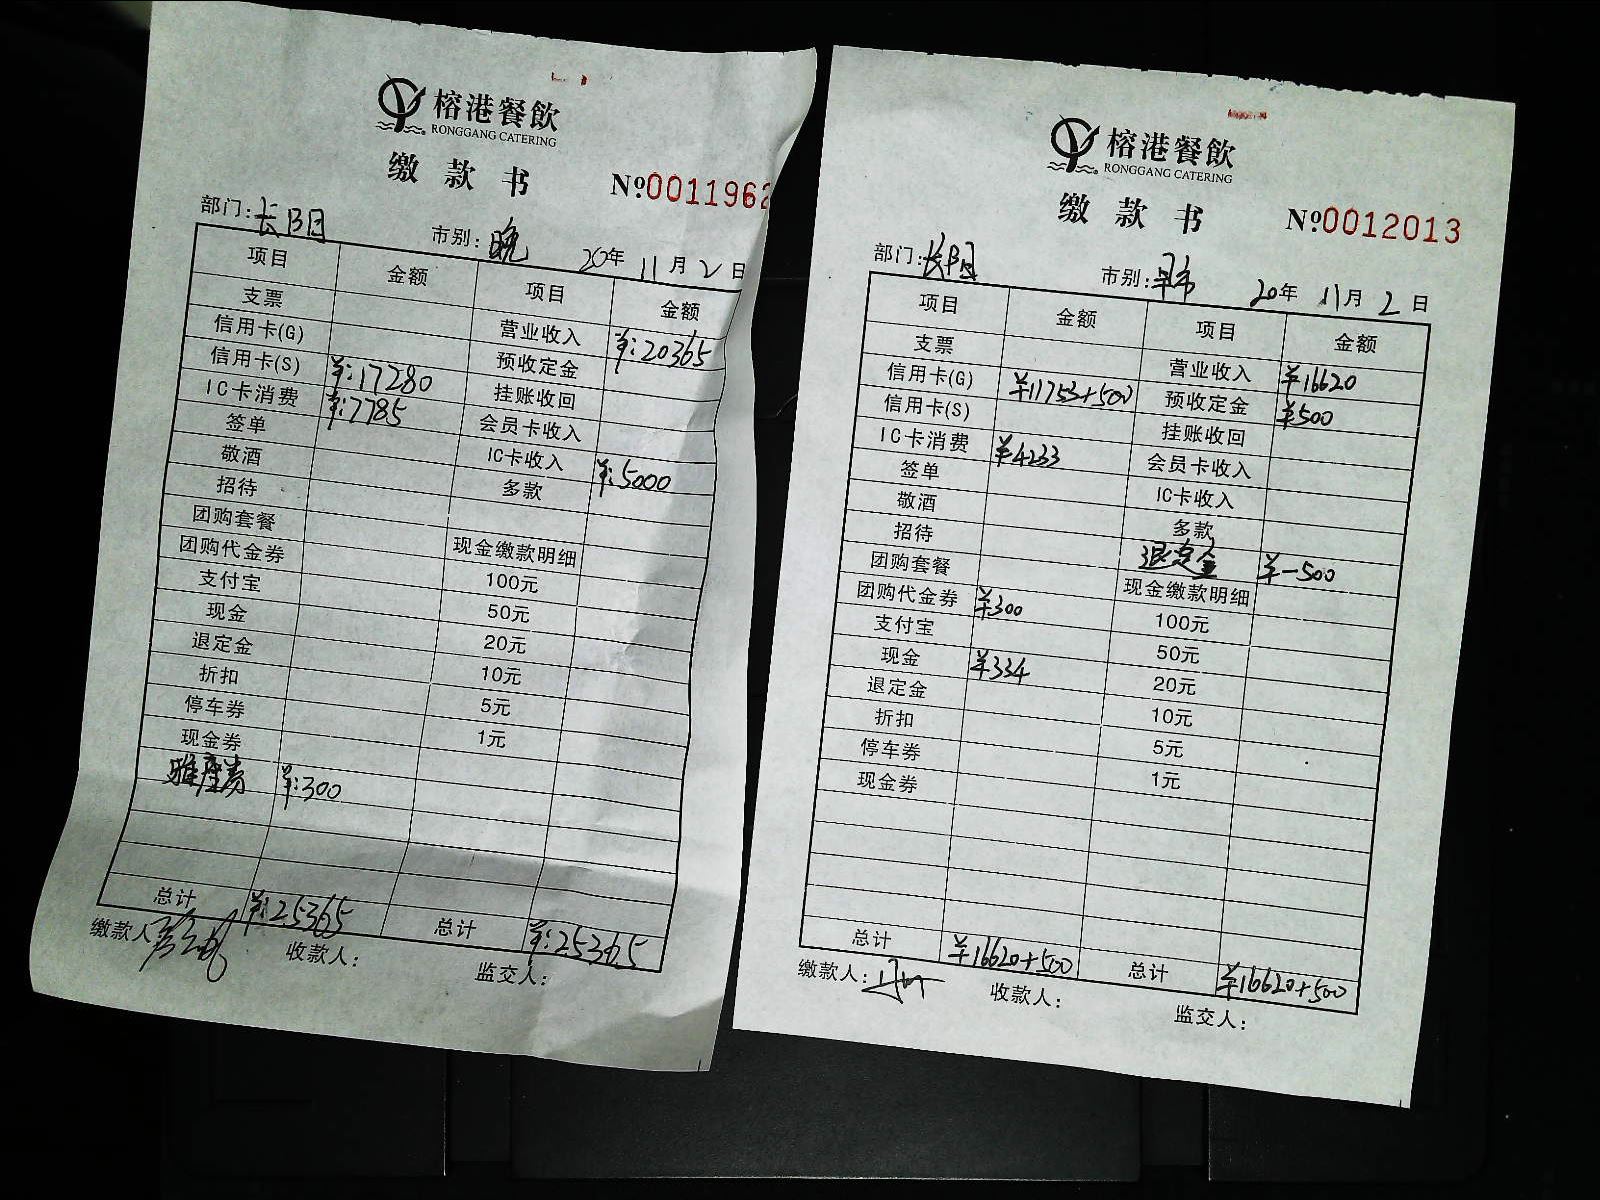 榕港餐飲
RONGGANG CATERING
缴款书 №0011962
部门: 长阳 市别: 晚 20年 11月 2日
项目 金额 项目 金额
支票 营业收入 ¥:20365
信用卡(G) 预收定金
信用卡(S) ¥:17280 挂账收回
IC卡消费 ¥:7785 会员卡收入
签单 IC卡收入 ¥:5000
敬酒 多款
招待
团购套餐 现金缴款明细
团购代金券 100元
支付宝 50元
现金 20元
退定金 10元
折扣 5元
停车券 1元
现金券
雅座券 ¥:300
总计 ¥:25365 总计 ¥:25365
缴款人 收款人: 监交人:
榕港餐飲
RONGGANG CATERING
缴款书 №0012013
部门: 长阳 市别: 早市 20年 11月 2日
项目 金额 项目 金额
支票 营业收入 ¥16620
信用卡(G) ¥11753+500 预收定金 ¥500
信用卡(S) 挂账收回
IC卡消费 ¥4233 会员卡收入
签单 IC卡收入
敬酒 多款
招待 退定金 ¥-500
团购套餐 现金缴款明细
团购代金券 ¥300 100元
支付宝 50元
现金 ¥334 20元
退定金 10元
折扣 5元
停车券 1元
现金券
总计 ¥16620+500 总计 ¥16620+500
缴款人: 收款人: 监交人: